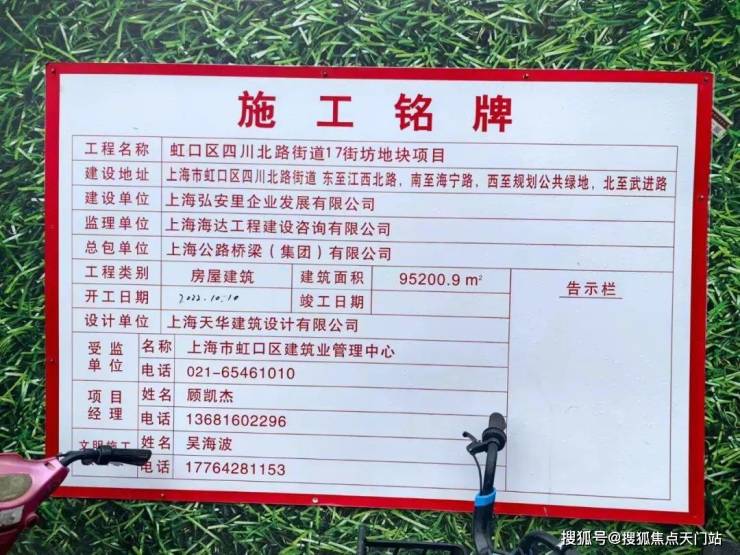 施工铭牌
工程名称 虹口区四川北路街道17街坊地块项目
建设地址 上海市虹口区四川北路街道 东至江西北路，南至海宁路，西至规划公共绿地，北至武进路
建设单位 上海弘安里企业发展有限公司
监理单位 上海海达工程建设咨询有限公司
总包单位 上海公路桥梁（集团）有限公司
工程类别 房屋建筑 建筑面积 95200.9 m² 告示栏
开工日期 2022.10.10 竣工日期
设计单位 上海天华建筑设计有限公司
受监单位 名称 上海市虹口区建筑业管理中心
电话 021-65461010
项目经理 姓名 顾凯杰
电话 13681602296
文明施工 姓名 吴海波
电话 17764281153
搜狐号@搜狐焦点天门站